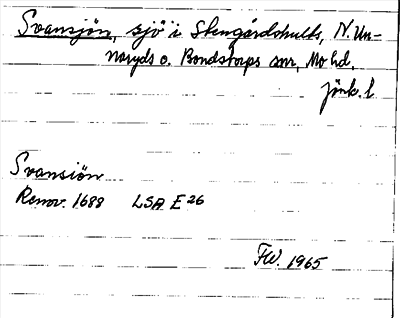 Svansjön, sjö i Stengårdshults, N. Un-
naryds o. Bondstorps snr, Mo hd.
Jönk. l.
Svansiön
Renov. 1688 LSA E 26
FW. 1965